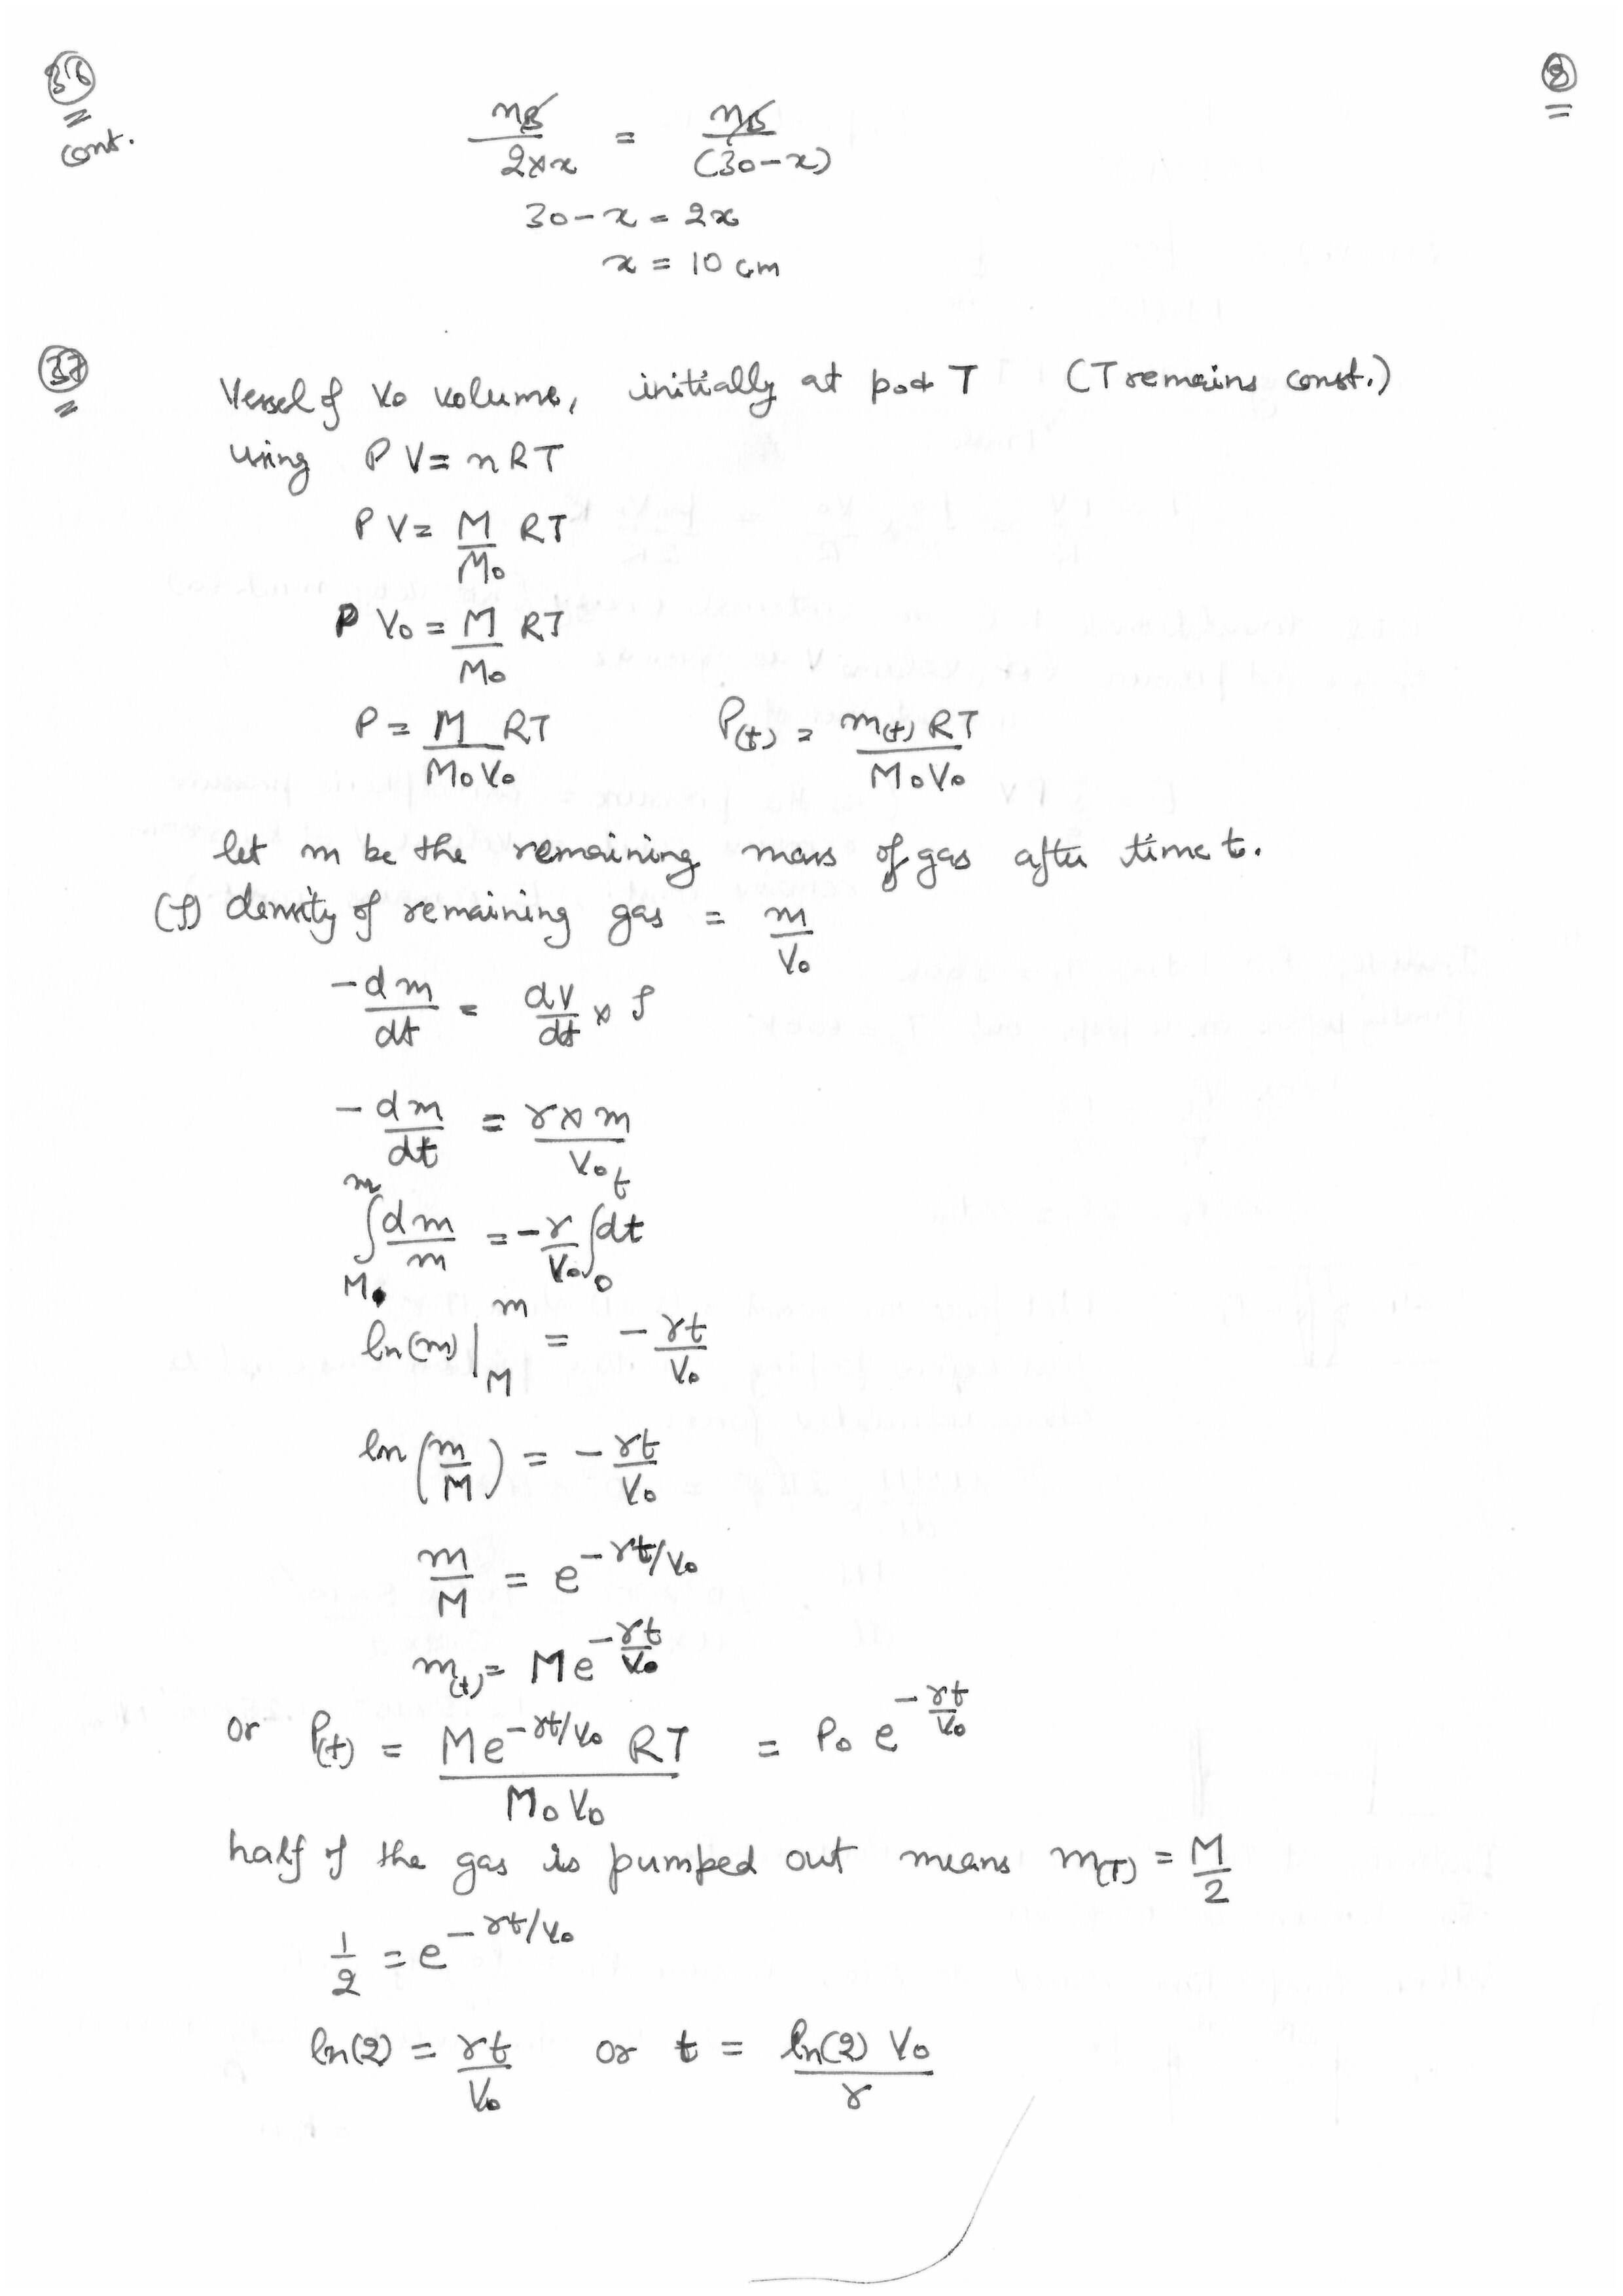 36 8
cont.
nB/(2×x) = nB/(30-x)
30-x = 2x
x = 10 cm
37
Vessel of V₀ volume, initially at p₀ & T (T remains const.)
using PV = nRT
PV = M/M₀ RT
P V₀ = M/M₀ RT
P = M/(M₀V₀) RT P(t) = m(t) RT/(M₀V₀)
let m be the remaining mass of gas after time t.
(ρ) density of remaining gas = m/V₀
-dm/dt = dV/dt × ρ
-dm/dt = r×m/V₀
∫_M^m dm/m = -r/V₀ ∫_0^t dt
ln(m)|_M^m = -rt/V₀
ln(m/M) = -rt/V₀
m/M = e^(-rt/V₀)
m(t) = Me^(-rt/V₀)
or P(t) = Me^(-rt/V₀) RT/(M₀V₀) = P₀ e^(-rt/V₀)
half of the gas is pumped out means m(T) = M/2
1/2 = e^(-rt/V₀)
ln(2) = rt/V₀ or t = ln(2) V₀/r